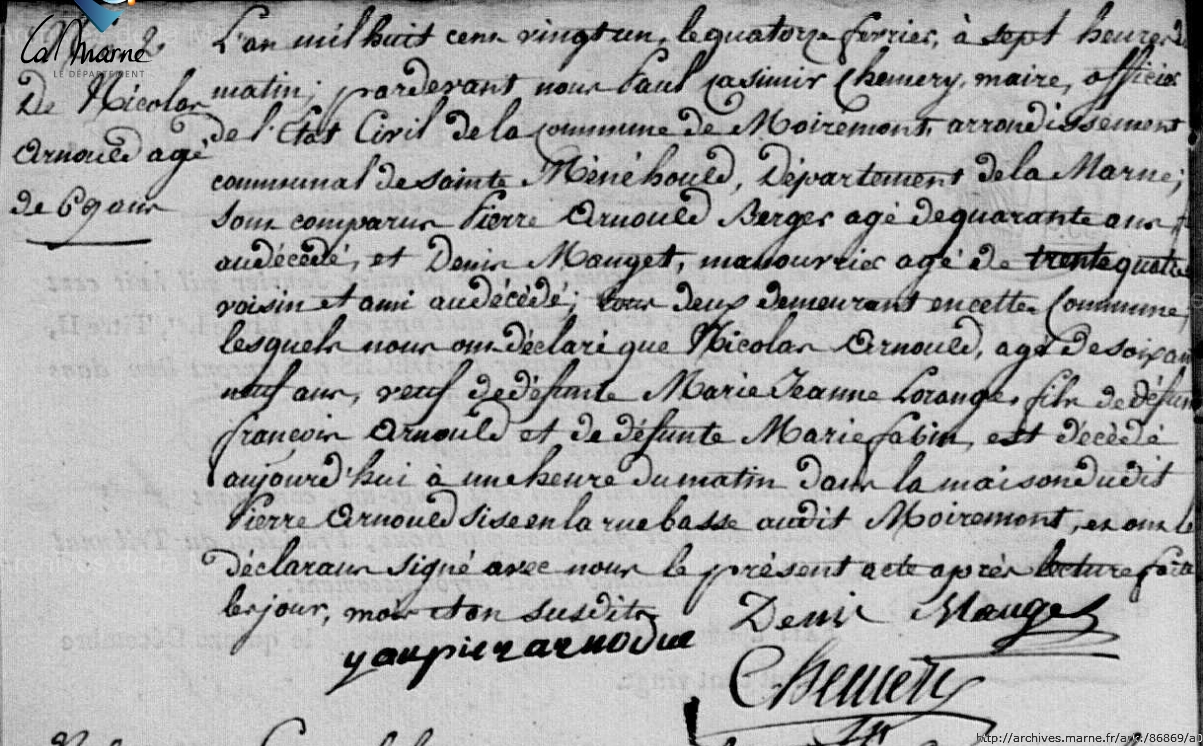 Ca Marne
LE DÉPARTEMENT
De Nicolas
Arnould agé
de 69 ans
L'an mil huit cent vingt un, le quatorze fevrier, à sept heures du
matin, pardevant nous Paul Casimir Chemery, maire, officier
de l'Etat Civil de la commune de Moiremont, arrondissement
communal de sainte Ménéhould, Département de la Marne;
sont comparus Pierre Arnould Berger agé de quarante ans
au décédé, et Denis Mauget, manouvrier agé de trente quatre
voisin et ami au décédé; tous deux demeurant en cette Commune,
lesquels nous ont déclaré que Nicolas Arnould, agé de soixan
neuf ans, veuf de défunte Marie Jeanne Lorange, fils de défunt
françois Arnould et de défunte Marie fabin, est décédé
aujourd'hui à une heure du matin dans la maison dudit
Pierre Arnould sise en la rue basse audit Moiremont, et ont le
déclarans signé avec nous le présent acte après lecture faite
les jour, mois et an susdits
Denis Mauget
Chemery
http://archives.marne.fr/ark:/86869/a